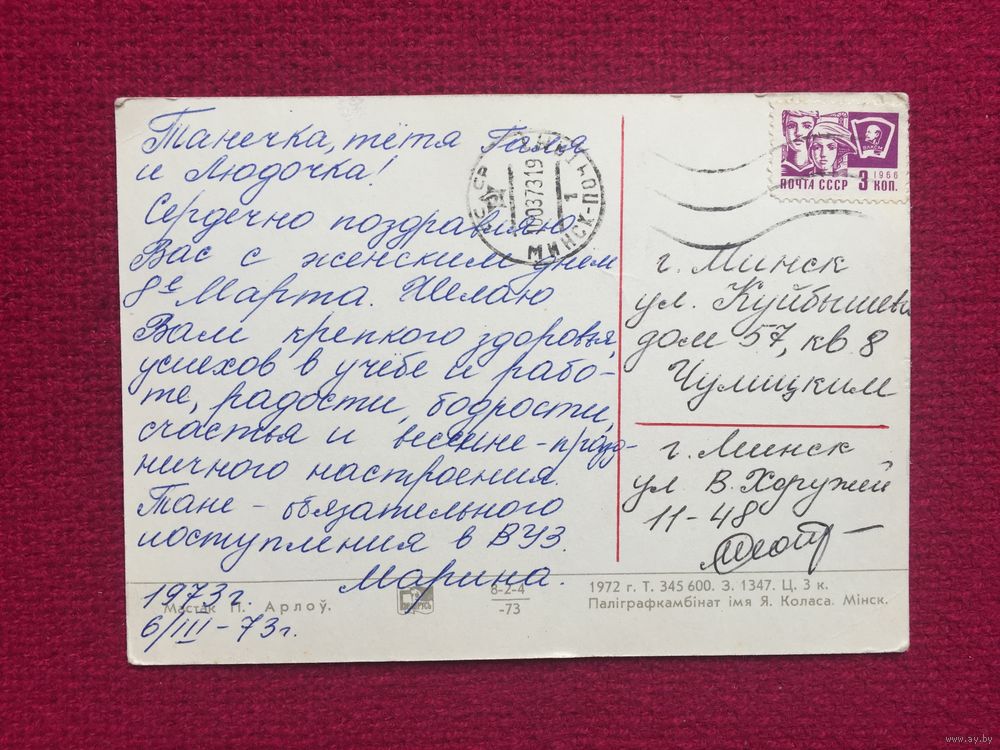 Танечка, тётя Галя
и Людочка!
Сердечно поздравляю
Вас с женским днем
8е Марта. Желаю
Вам крепкого здоровья,
успехов в учёбе и рабо-
те, радости, бодрости,
счастья и весенне-празд-
ничного настроения.
Тане - обязательного
поступления в ВУЗ.
Марина.
1973г
6/III-73г.
Мастак П. Арлоў.
8-2-4
-73
1972 г. Т. 345 600. З. 1347. Ц. 3 к.
Паліграфкамбінат імя Я. Коласа. Мінск.
МИНСК-П
06037319
1
ПОЧТА СССР 3 КОП.
1966
ВЛКСМ
г. Минск
ул. Куйбышева
дом 57, кв 8
Чумицким
г. Минск
ул В. Хоружей
11-48
www.ay.by